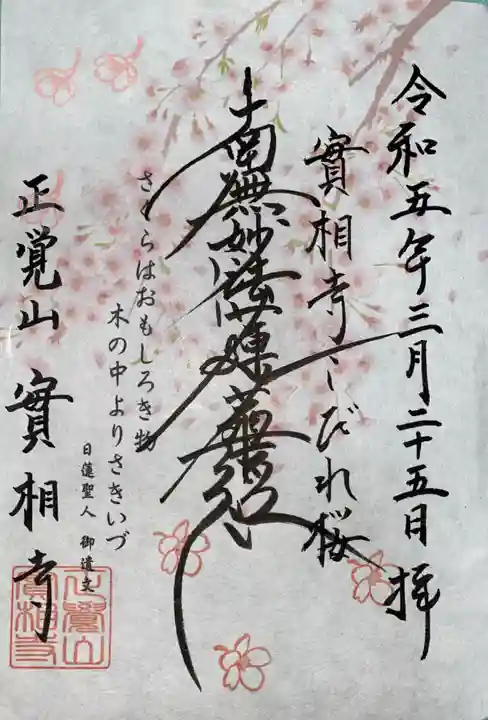 令和五年三月二十五日 拝
實相寺しだれ桜
南無妙法蓮華経
さくらはおもしろき物
木の中よりさきいづ
日蓮聖人 御遺文
正覚山 實相寺
正覺山
實相寺